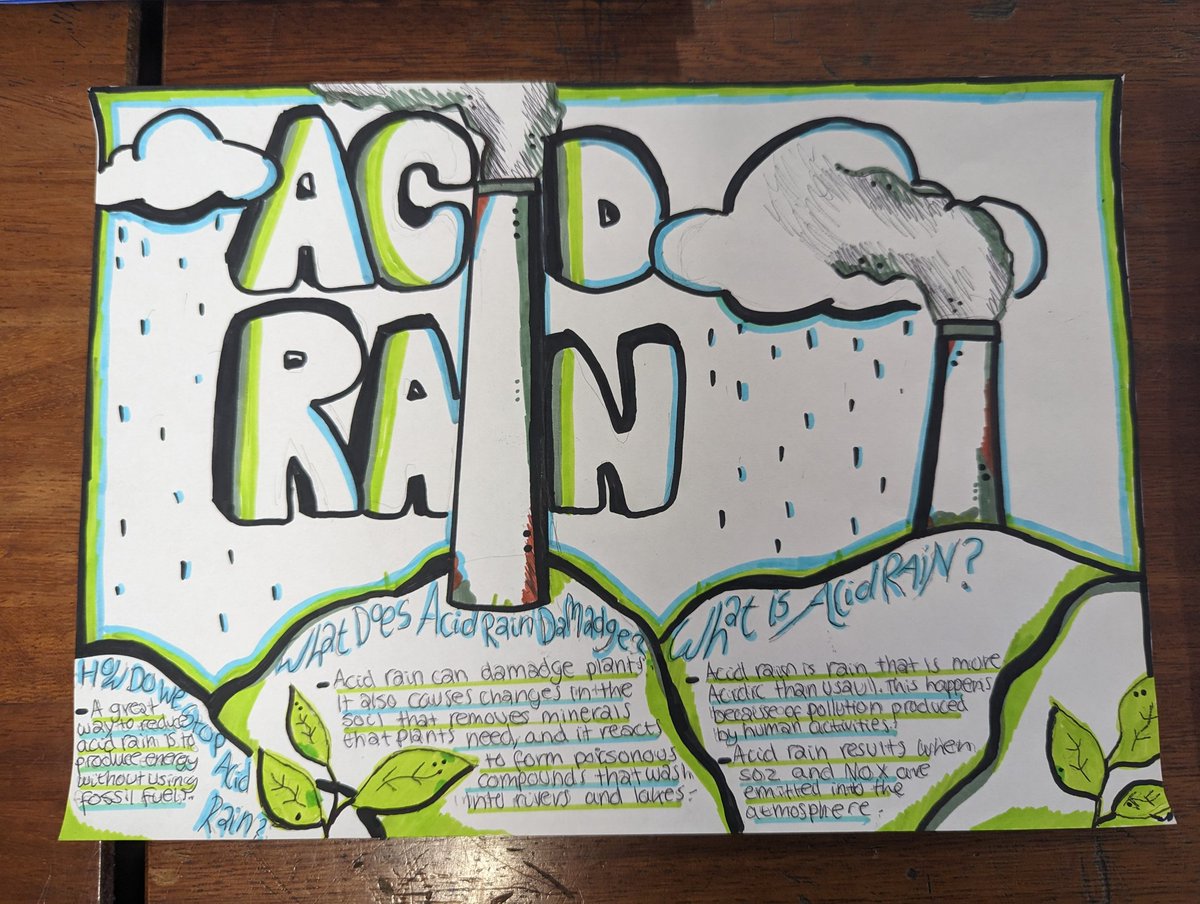 ACID
RAIN
How Do We Stop Acid Rain?
- A great
way to reduce
acid rain is to
produce energy
without using
fossil fuels.
What Does Acid Rain Damadge?
- Acid rain can damadge plants.
It also causes changes in the
soil that removes minerals
that plants need, and it reacts
to form poisonous
compounds that wash
into rivers and lakes.
What is Acid RAIN?
- Acid rain is rain that is more
Acirdic than usaul. This happens
because of pollution produced
by human activities.
- Acid rain results when
SO2 and NOX are
emitted into the
atmosphere.